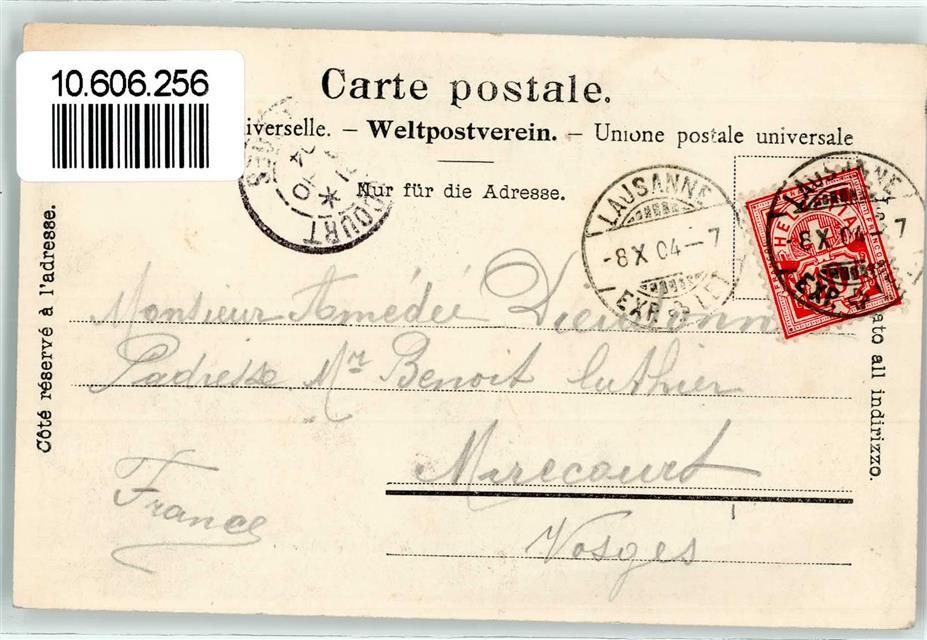 10.606.256
Carte postale.
iverselle. – Weltpostverein. – Unione postale universale
Nur für die Adresse.
Côté réservé à l'adresse.
ato all indirizzo.
COURT
LAUSANNE
-8 X 04 – 7
EXP. LET.
LAUSANNE
-8 X 04 – 7
EXP.
HELVETIA
FRANCO
Monsieur Amédée Dieudonné
Padresse Mr Benoit luthier
Mirecourt
Vosges
France